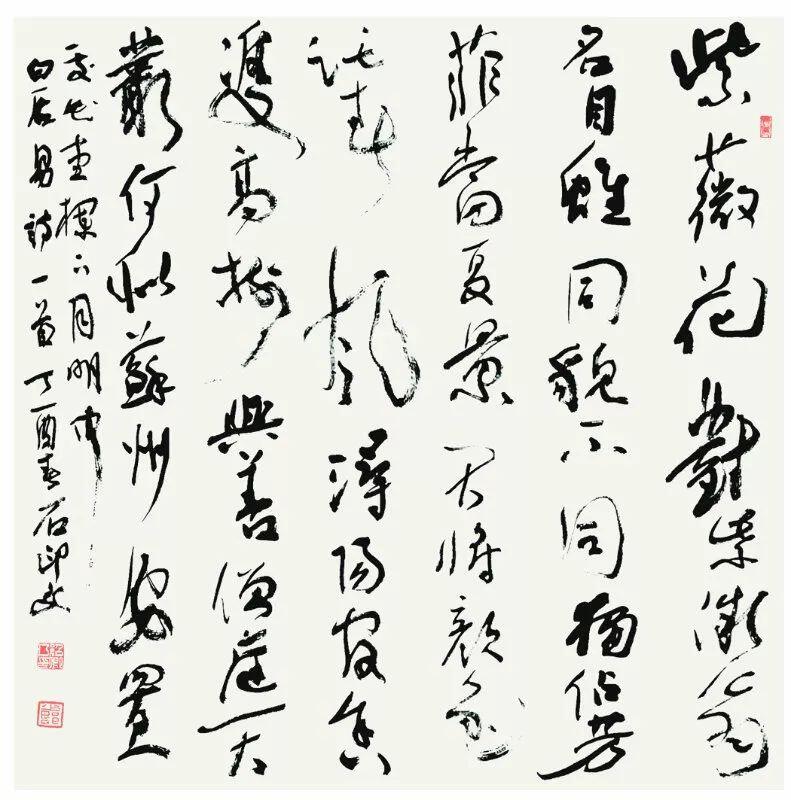 紫薇花對紫微翁
名目雖同貌不同獨佔芳
菲當夏景不將顏色
託春風潯陽官舍
雙高樹興善僧庭一大
叢何似蘇州安置
處花堂欄下月明中
白居易詩一首丁酉春石印文